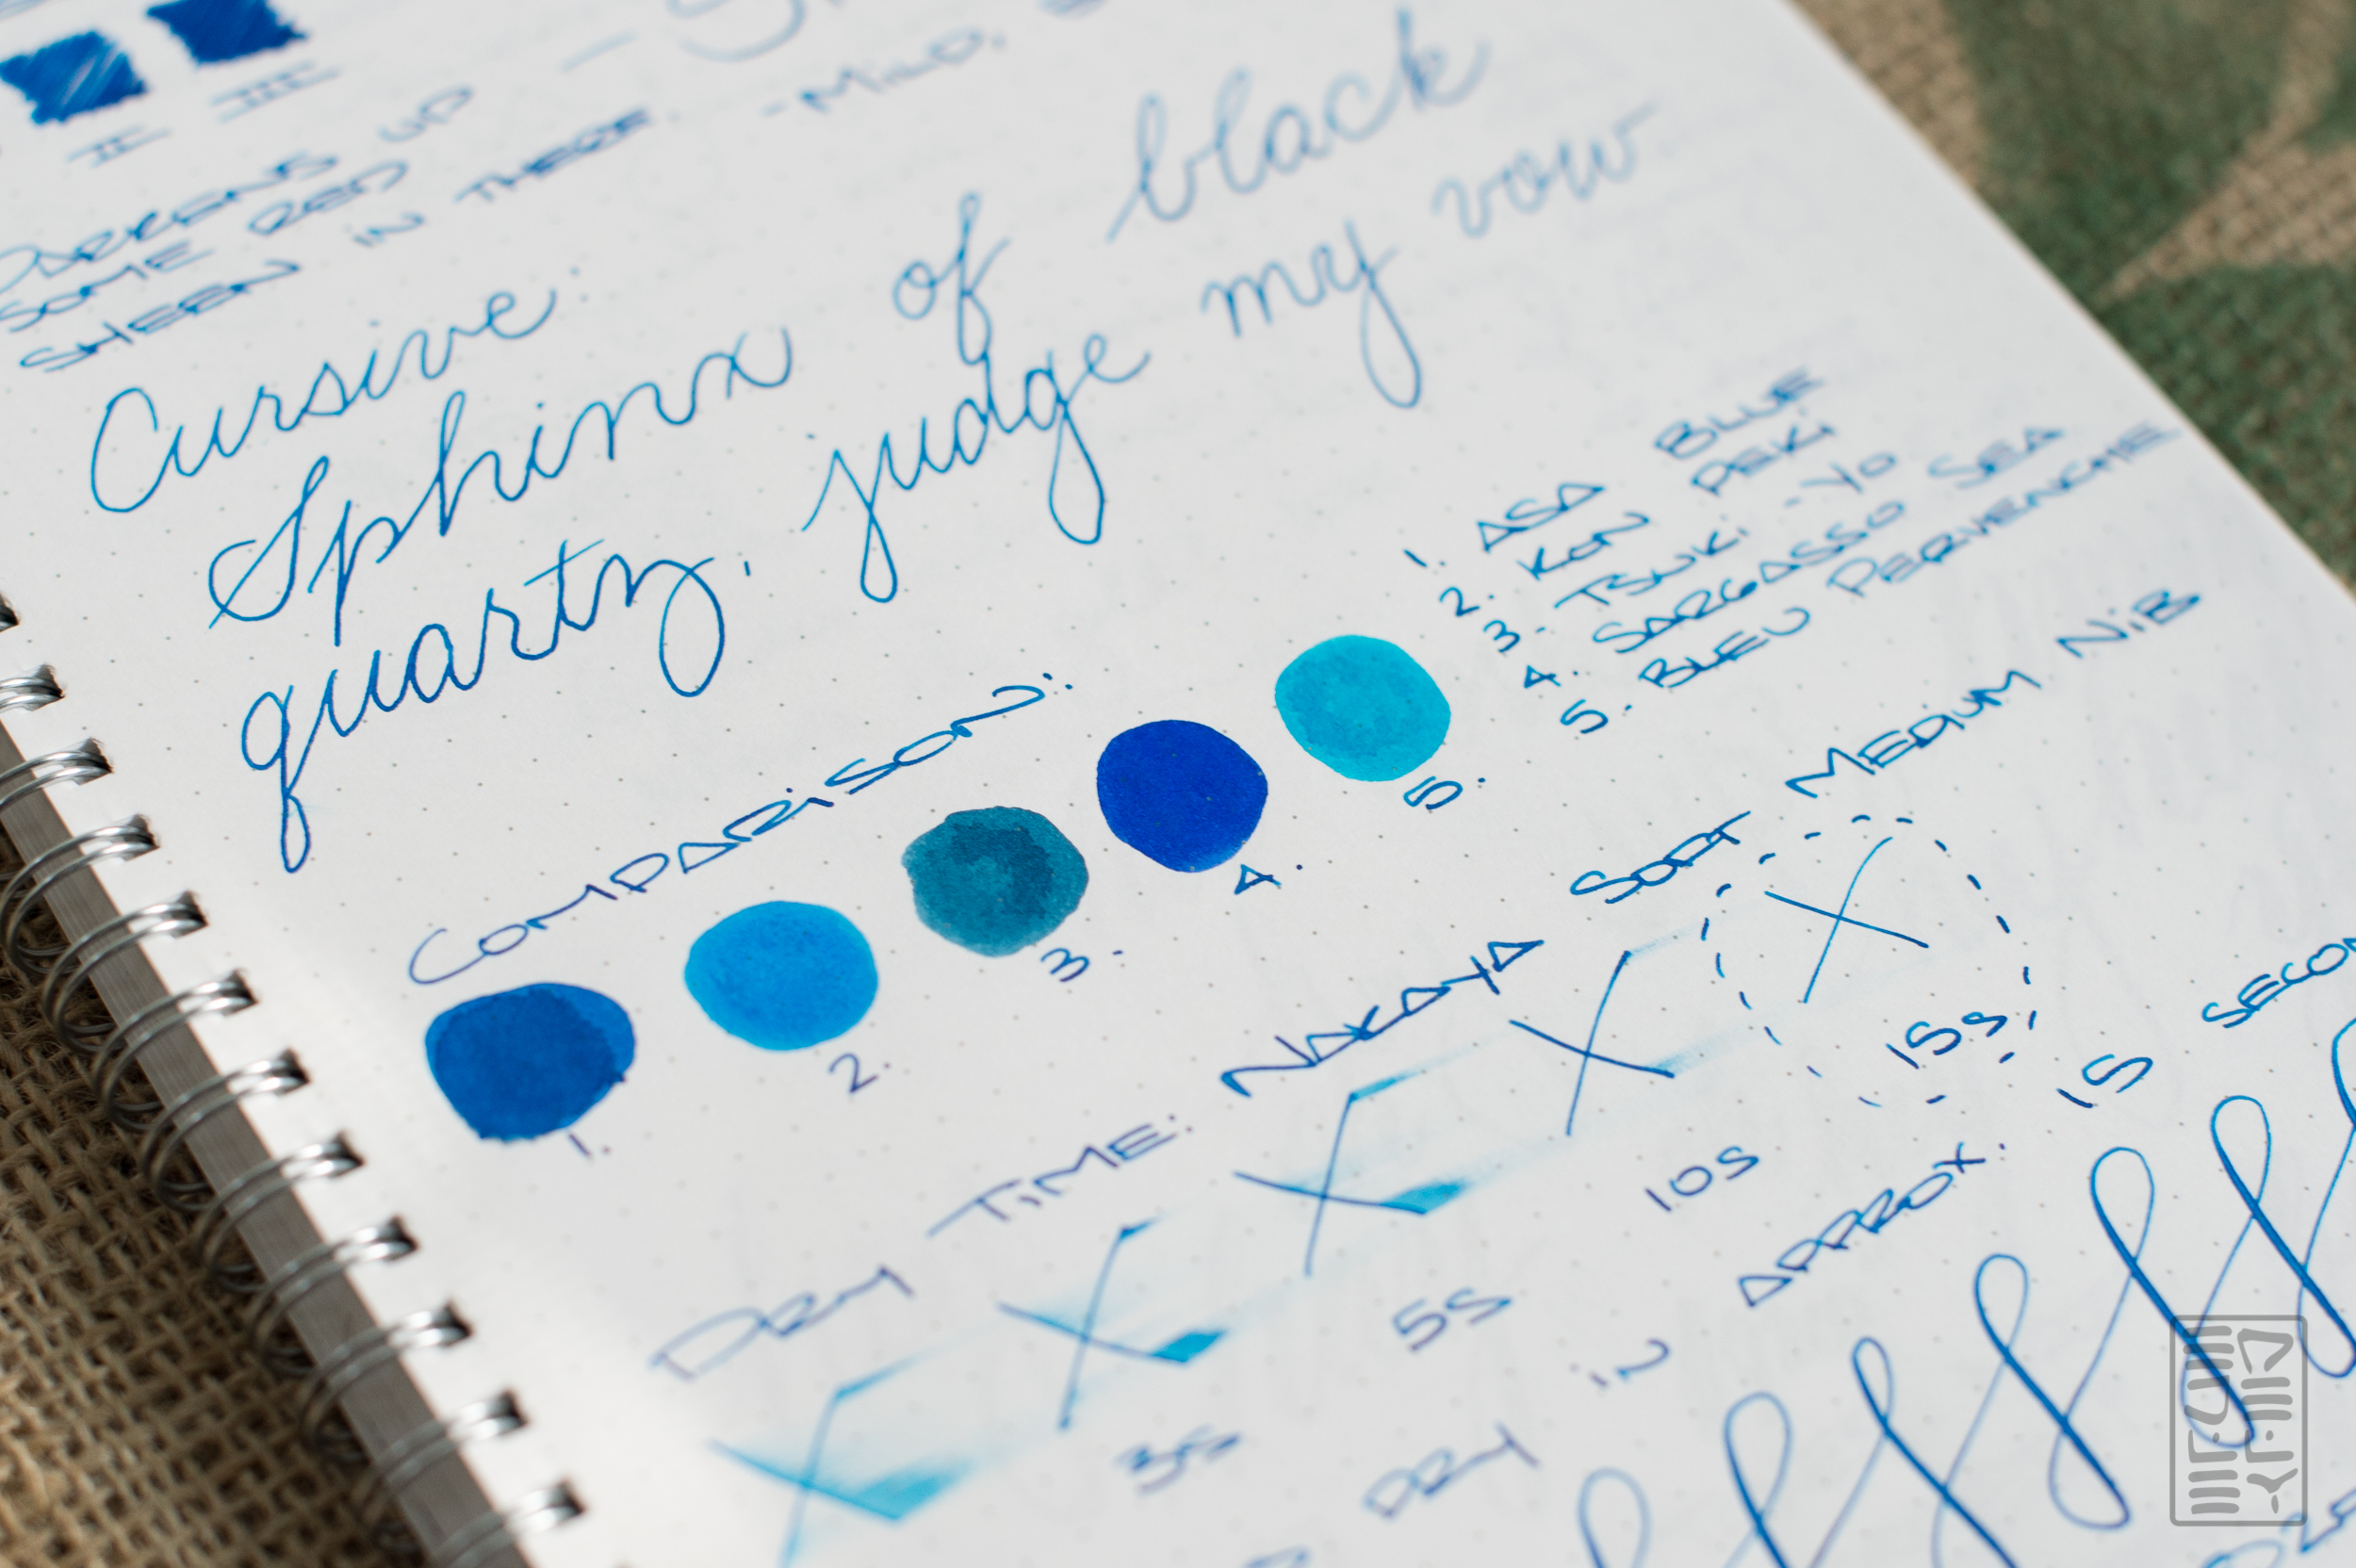 II III
DARKENS UP
SOME RED
SHEEN IN THERE.
-MILD,
Cursive:
Sphinx of black
quartz, judge my vow
COMPARISON:
1. 2. 3. 4. 5.
1. ASA BLUE
2. KON PEKI
3. TSUKI-YO
4. SARGASSO SEA
5. BLEU PERVENCHE
DRY TIME: NAKAYA SOFT MEDIUM NIB
3S 5S 10S 15S
DRY IN APPROX. 15 SECON